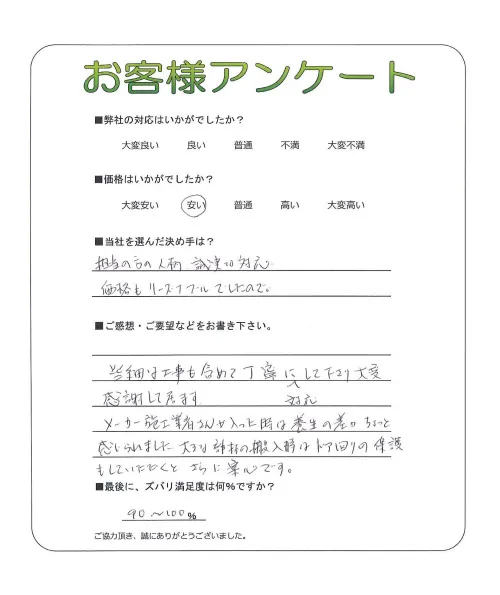 お客様アンケート
■弊社の対応はいかがでしたか？
大変良い 良い 普通 不満 大変不満
■価格はいかがでしたか？
大変安い 安い 普通 高い 大変高い
■当社を選んだ決め手は？
担当の方の人柄 誠実な対応
価格もリーズナブルでしたので。
■ご感想・ご要望などをお書き下さい。
工事も含めて丁寧にして下さり大変
対応
感謝して居ます
メーカー施工業者さんが入った時は養生の差がちょっと
感じられました 大きな 部材の搬入時はドア回りの保護
もしていただくと さらに安心です。
■最後に、ズバリ満足度は何％ですか？
90〜100%
ご協力頂き、誠にありがとうございました。